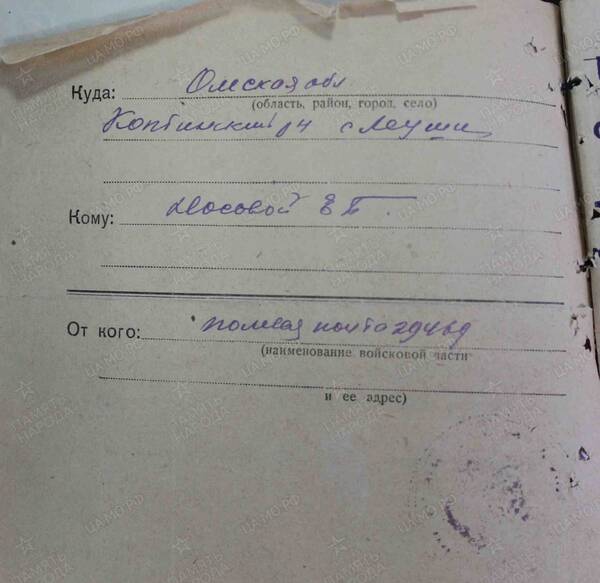 Куда: Омская обл
(область, район, город, село)
Кондинский р н с Леуши
Кому: Носовой Е П.
От кого: полевая почта 29469
(наименование войсковой части
и ее адрес)